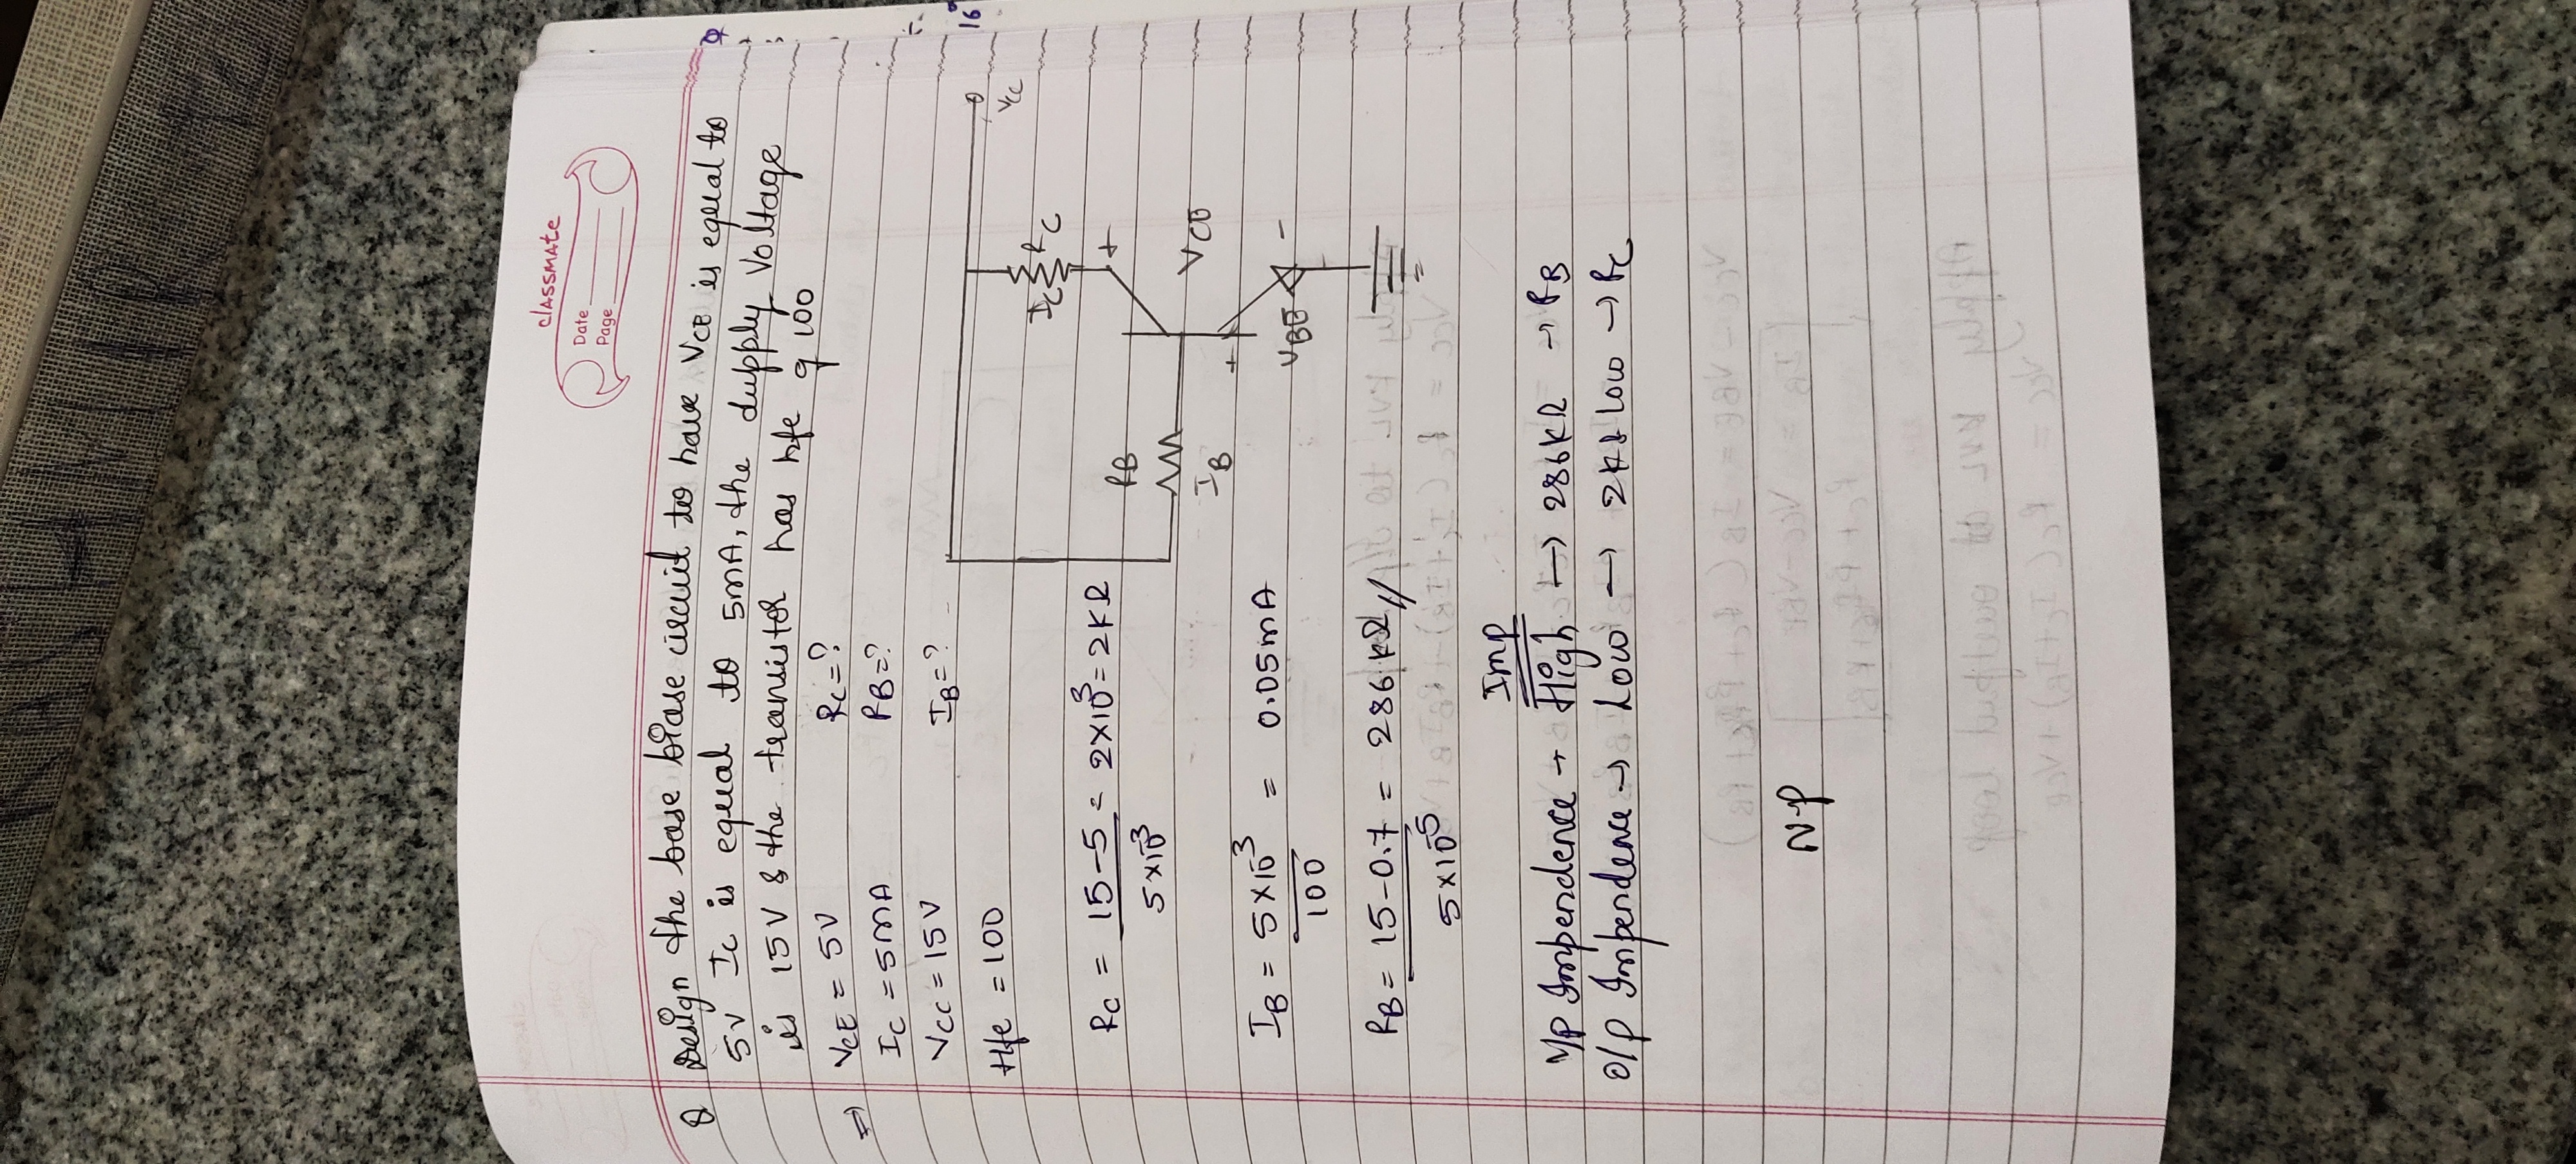 KASHMIR
classmate
Date
Page
Q Design the base biase circuit to have VCE is equal to
5V IC is equal to 5mA, the dupply Voltage
is 15V & the transistor has hfe of 100
⇒ VCE = 5V RC = ?
IC = 5mA RB = ?
VCC = 15V IB = ?
Hfe = 100
VCC
IC RC
+
RC = 15-5 / 5×10⁻³ = 2×10³ = 2KΩ
RB
IB
VCE
+
VBE
-
IB = 5×10⁻³ / 100 = 0.05mA
RB = 15-0.7 / 5×10⁻⁵ = 286 kΩ //
Imp
I/P Impendence → High → 286kΩ → RB
O/P Impendence → Low → 2kΩ Low → RC
N-P
16